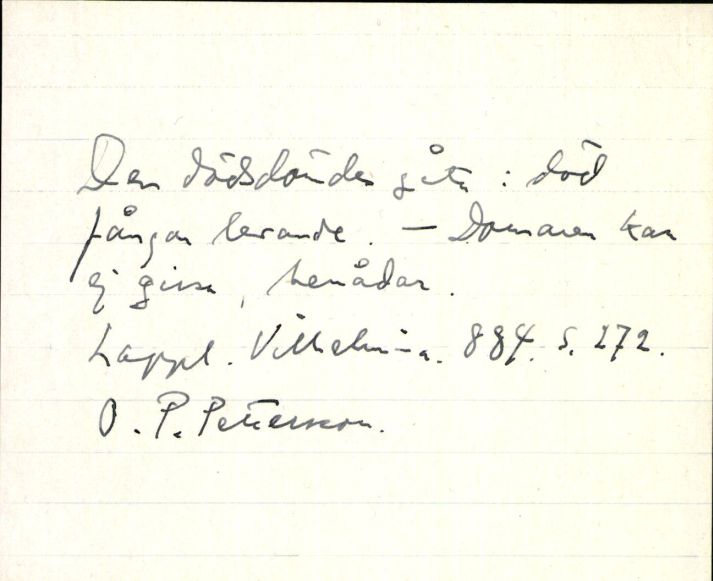 Den dödsdömdes gåta : död
fångar levande. — Domaren kan
ej gissa, benådar.
Lappl. Vilhelmina. 884. S. 272.
O. P. Pettersson.